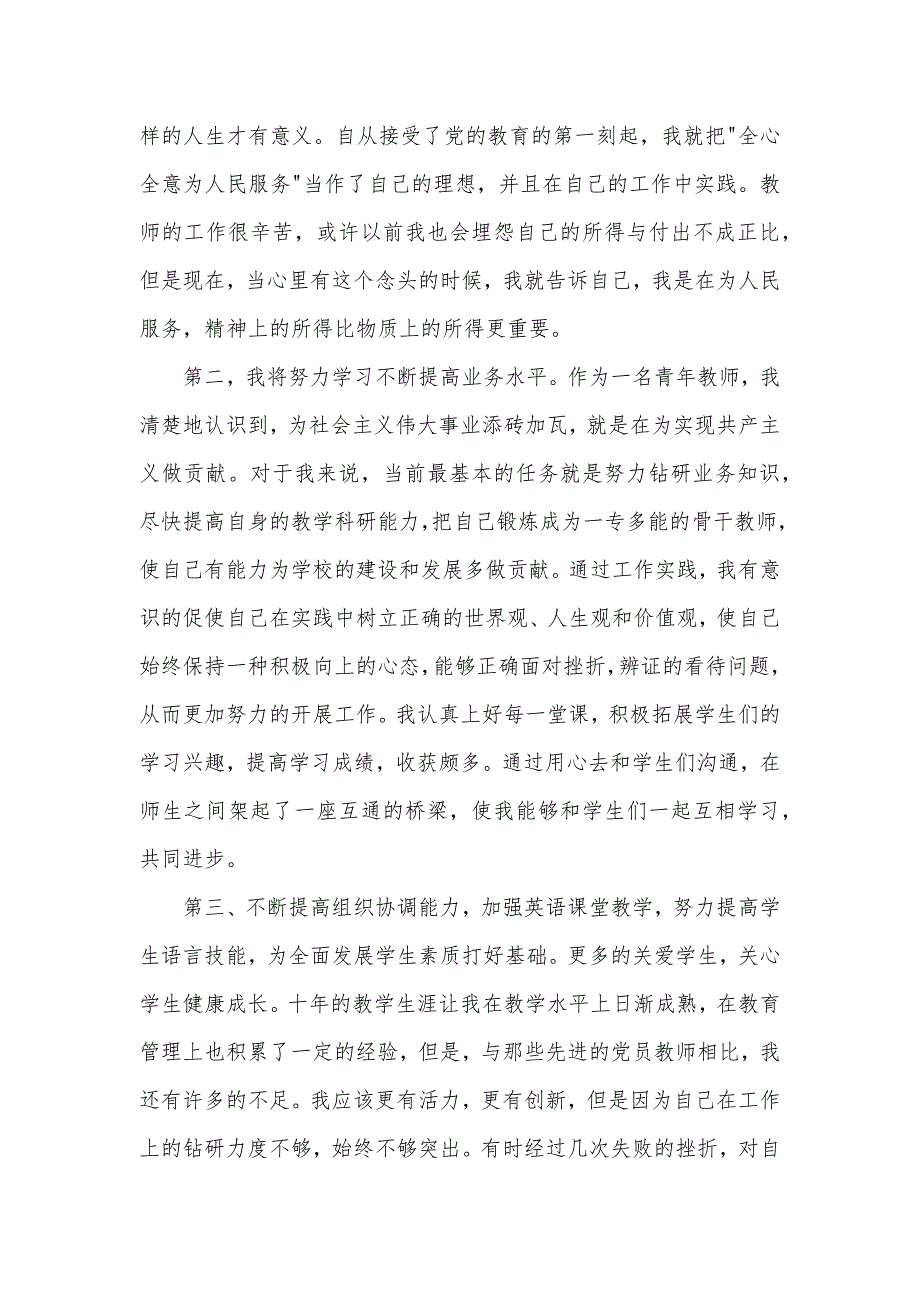 样的人生才有意义。自从接受了党的教育的第一刻起，我就把"全心
全意为人民服务"当作了自己的理想，并且在自己的工作中实践。教
师的工作很辛苦，或许以前我也会埋怨自己的所得与付出不成正比，
但是现在，当心里有这个念头的时候，我就告诉自己，我是在为人民
服务，精神上的所得比物质上的所得更重要。
第二，我将努力学习不断提高业务水平。作为一名青年教师，我
清楚地认识到，为社会主义伟大事业添砖加瓦，就是在为实现共产主
义做贡献。对于我来说，当前最基本的任务就是努力钻研业务知识，
尽快提高自身的教学科研能力，把自己锻炼成为一专多能的骨干教师，
使自己有能力为学校的建设和发展多做贡献。通过工作实践，我有意
识的促使自己在实践中树立正确的世界观、人生观和价值观，使自己
始终保持一种积极向上的心态，能够正确面对挫折，辨证的看待问题，
从而更加努力的开展工作。我认真上好每一堂课，积极拓展学生们的
学习兴趣，提高学习成绩，收获颇多。通过用心去和学生们沟通，在
师生之间架起了一座互通的桥梁，使我能够和学生们一起互相学习，
共同进步。
第三、不断提高组织协调能力，加强英语课堂教学，努力提高学
生语言技能，为全面发展学生素质打好基础。更多的关爱学生，关心
学生健康成长。十年的教学生涯让我在教学水平上日渐成熟，在教育
管理上也积累了一定的经验，但是，与那些先进的党员教师相比，我
还有许多的不足。我应该更有活力，更有创新，但是因为自己在工作
上的钻研力度不够，始终不够突出。有时经过几次失败的挫折，对自